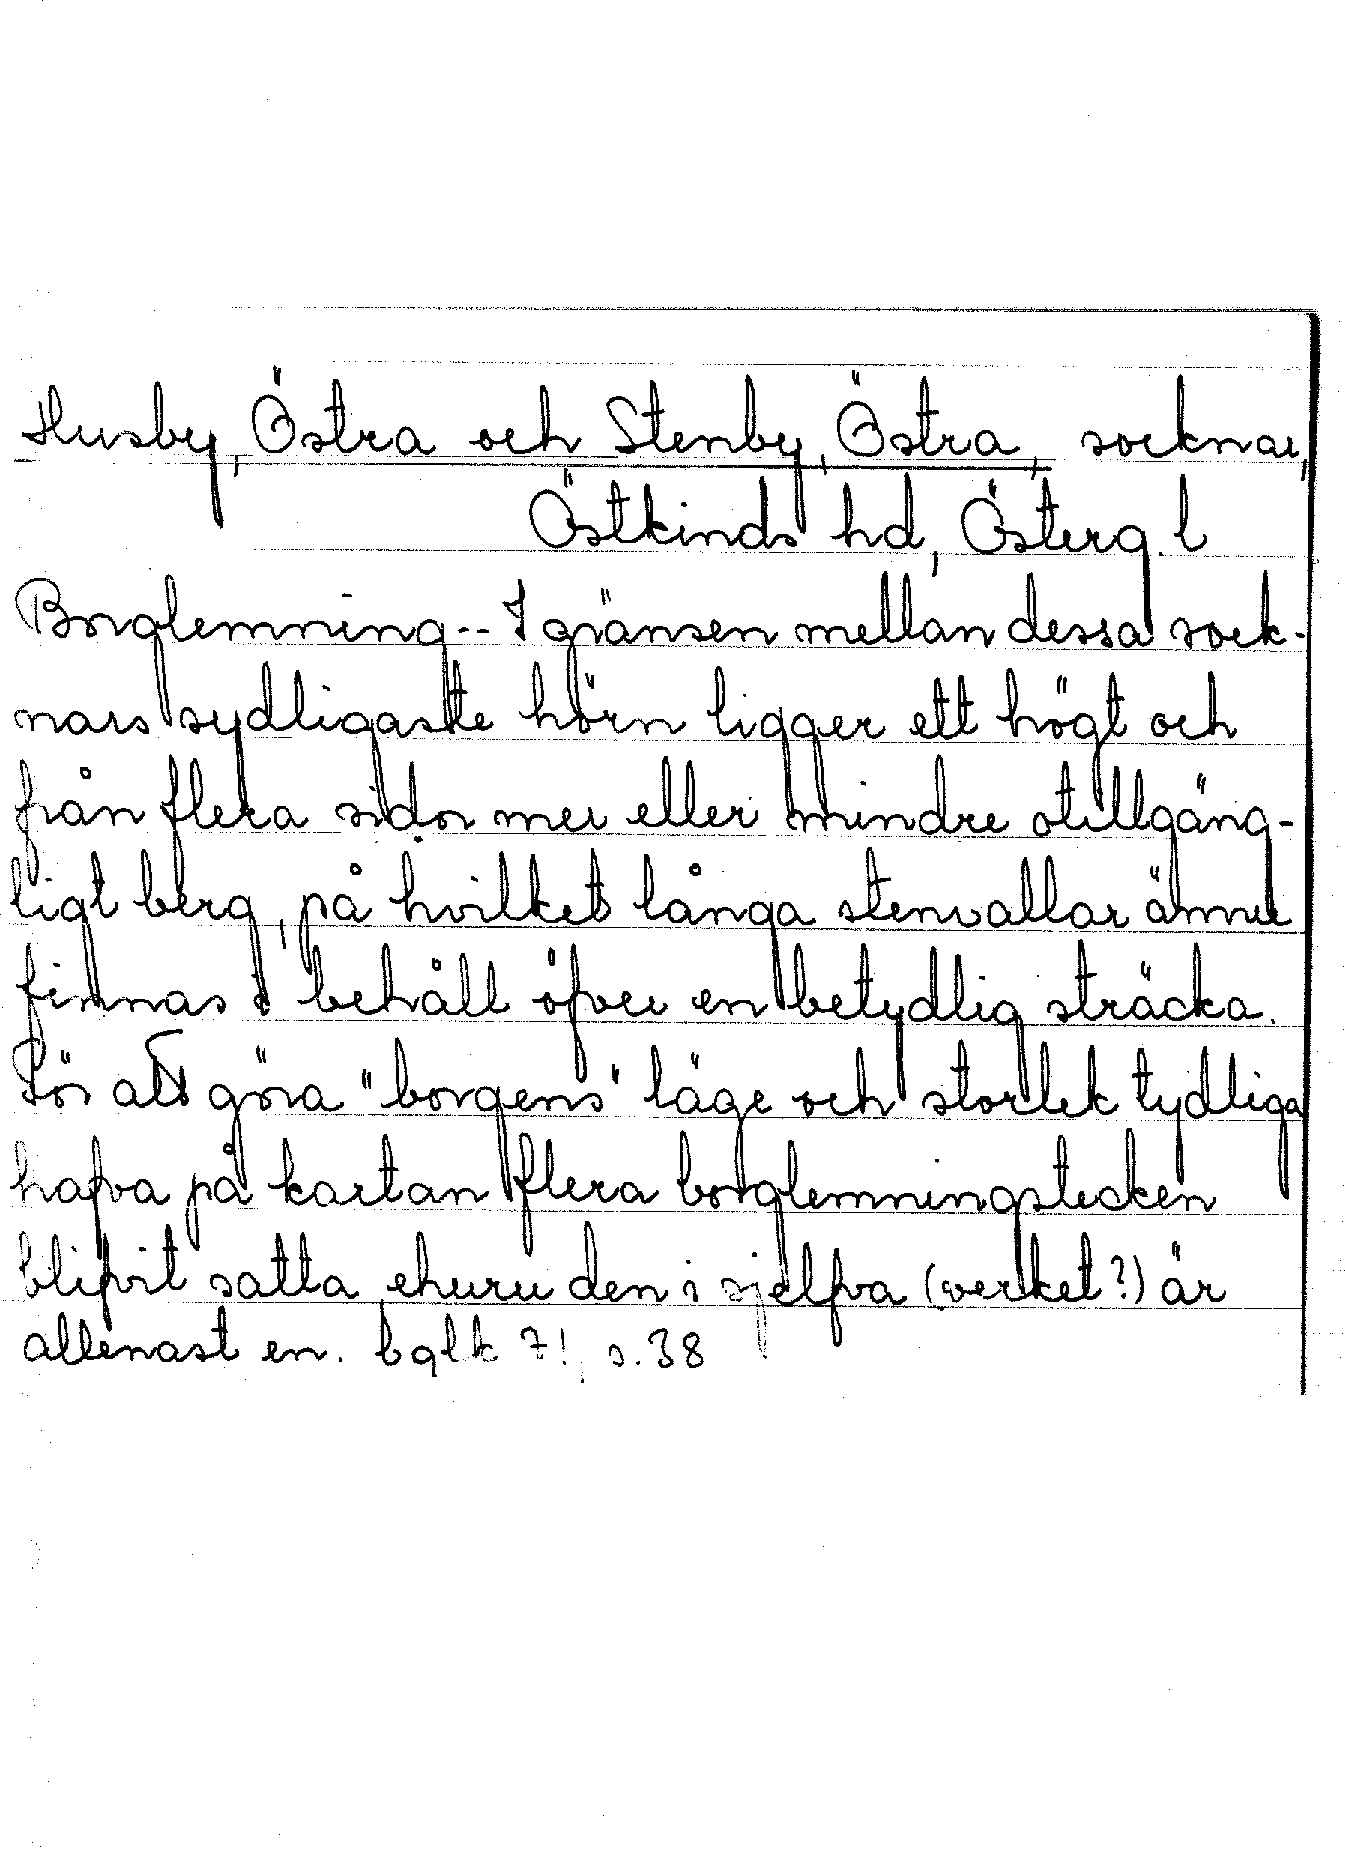 Husby, Östra och Stenby, Östra, socknar,
Östkinds hd, Österg. l
Borglemning -- I gränsen mellan dessa sock-
nars sydligaste hörn ligger ett högt och
från flera sidor mer eller mindre otillgäng-
ligt berg, på hvilket långa stenvallar ännu
finnas i behåll öfver en betydlig sträcka.
För att göra "borgens" läge och storlek tydliga
hafva på kartan flera borglemningstecken
blifvit satta ehuru den i sjelfva (verket?) är
allenast en. bglk 7! s. 38